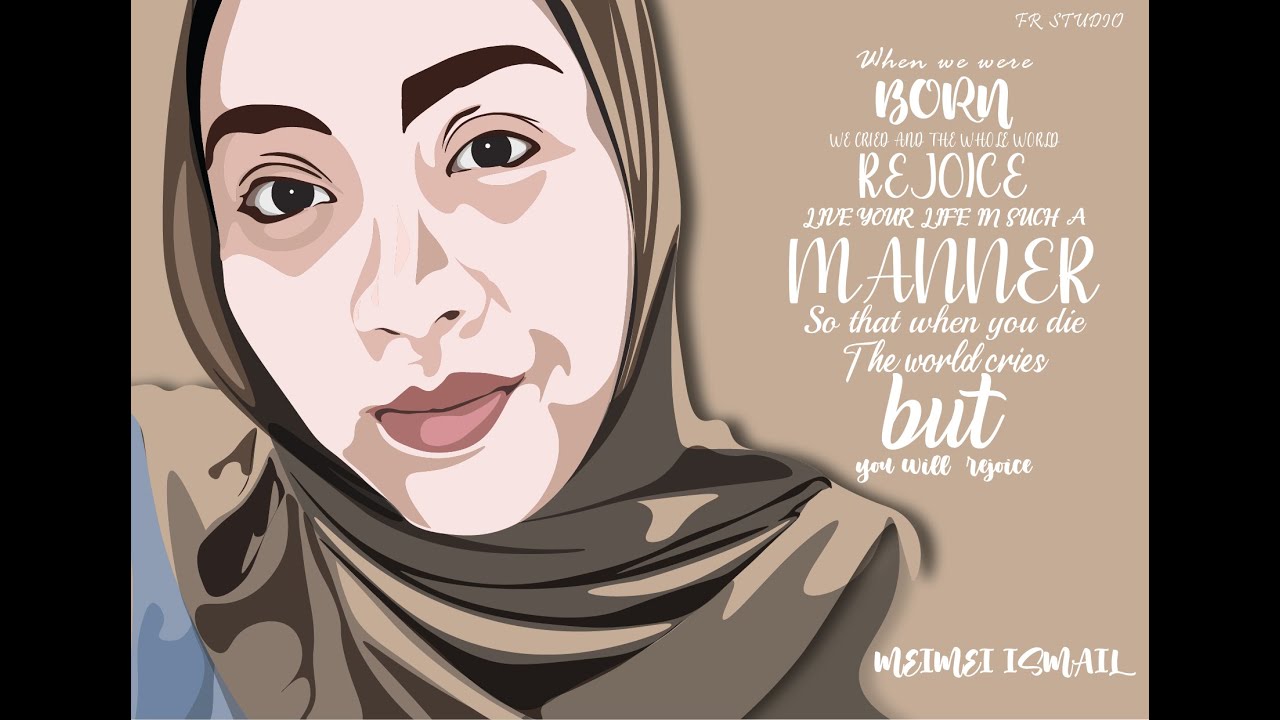 FR STUDIO
When we were
BORN
WE CRIED AND THE WHOLE WORLD
REJOICE
LIVE YOUR LIFE IN SUCH A
MANNER
So that when you die
The world cries
but
you will rejoice
MEIMEI ISMAIL